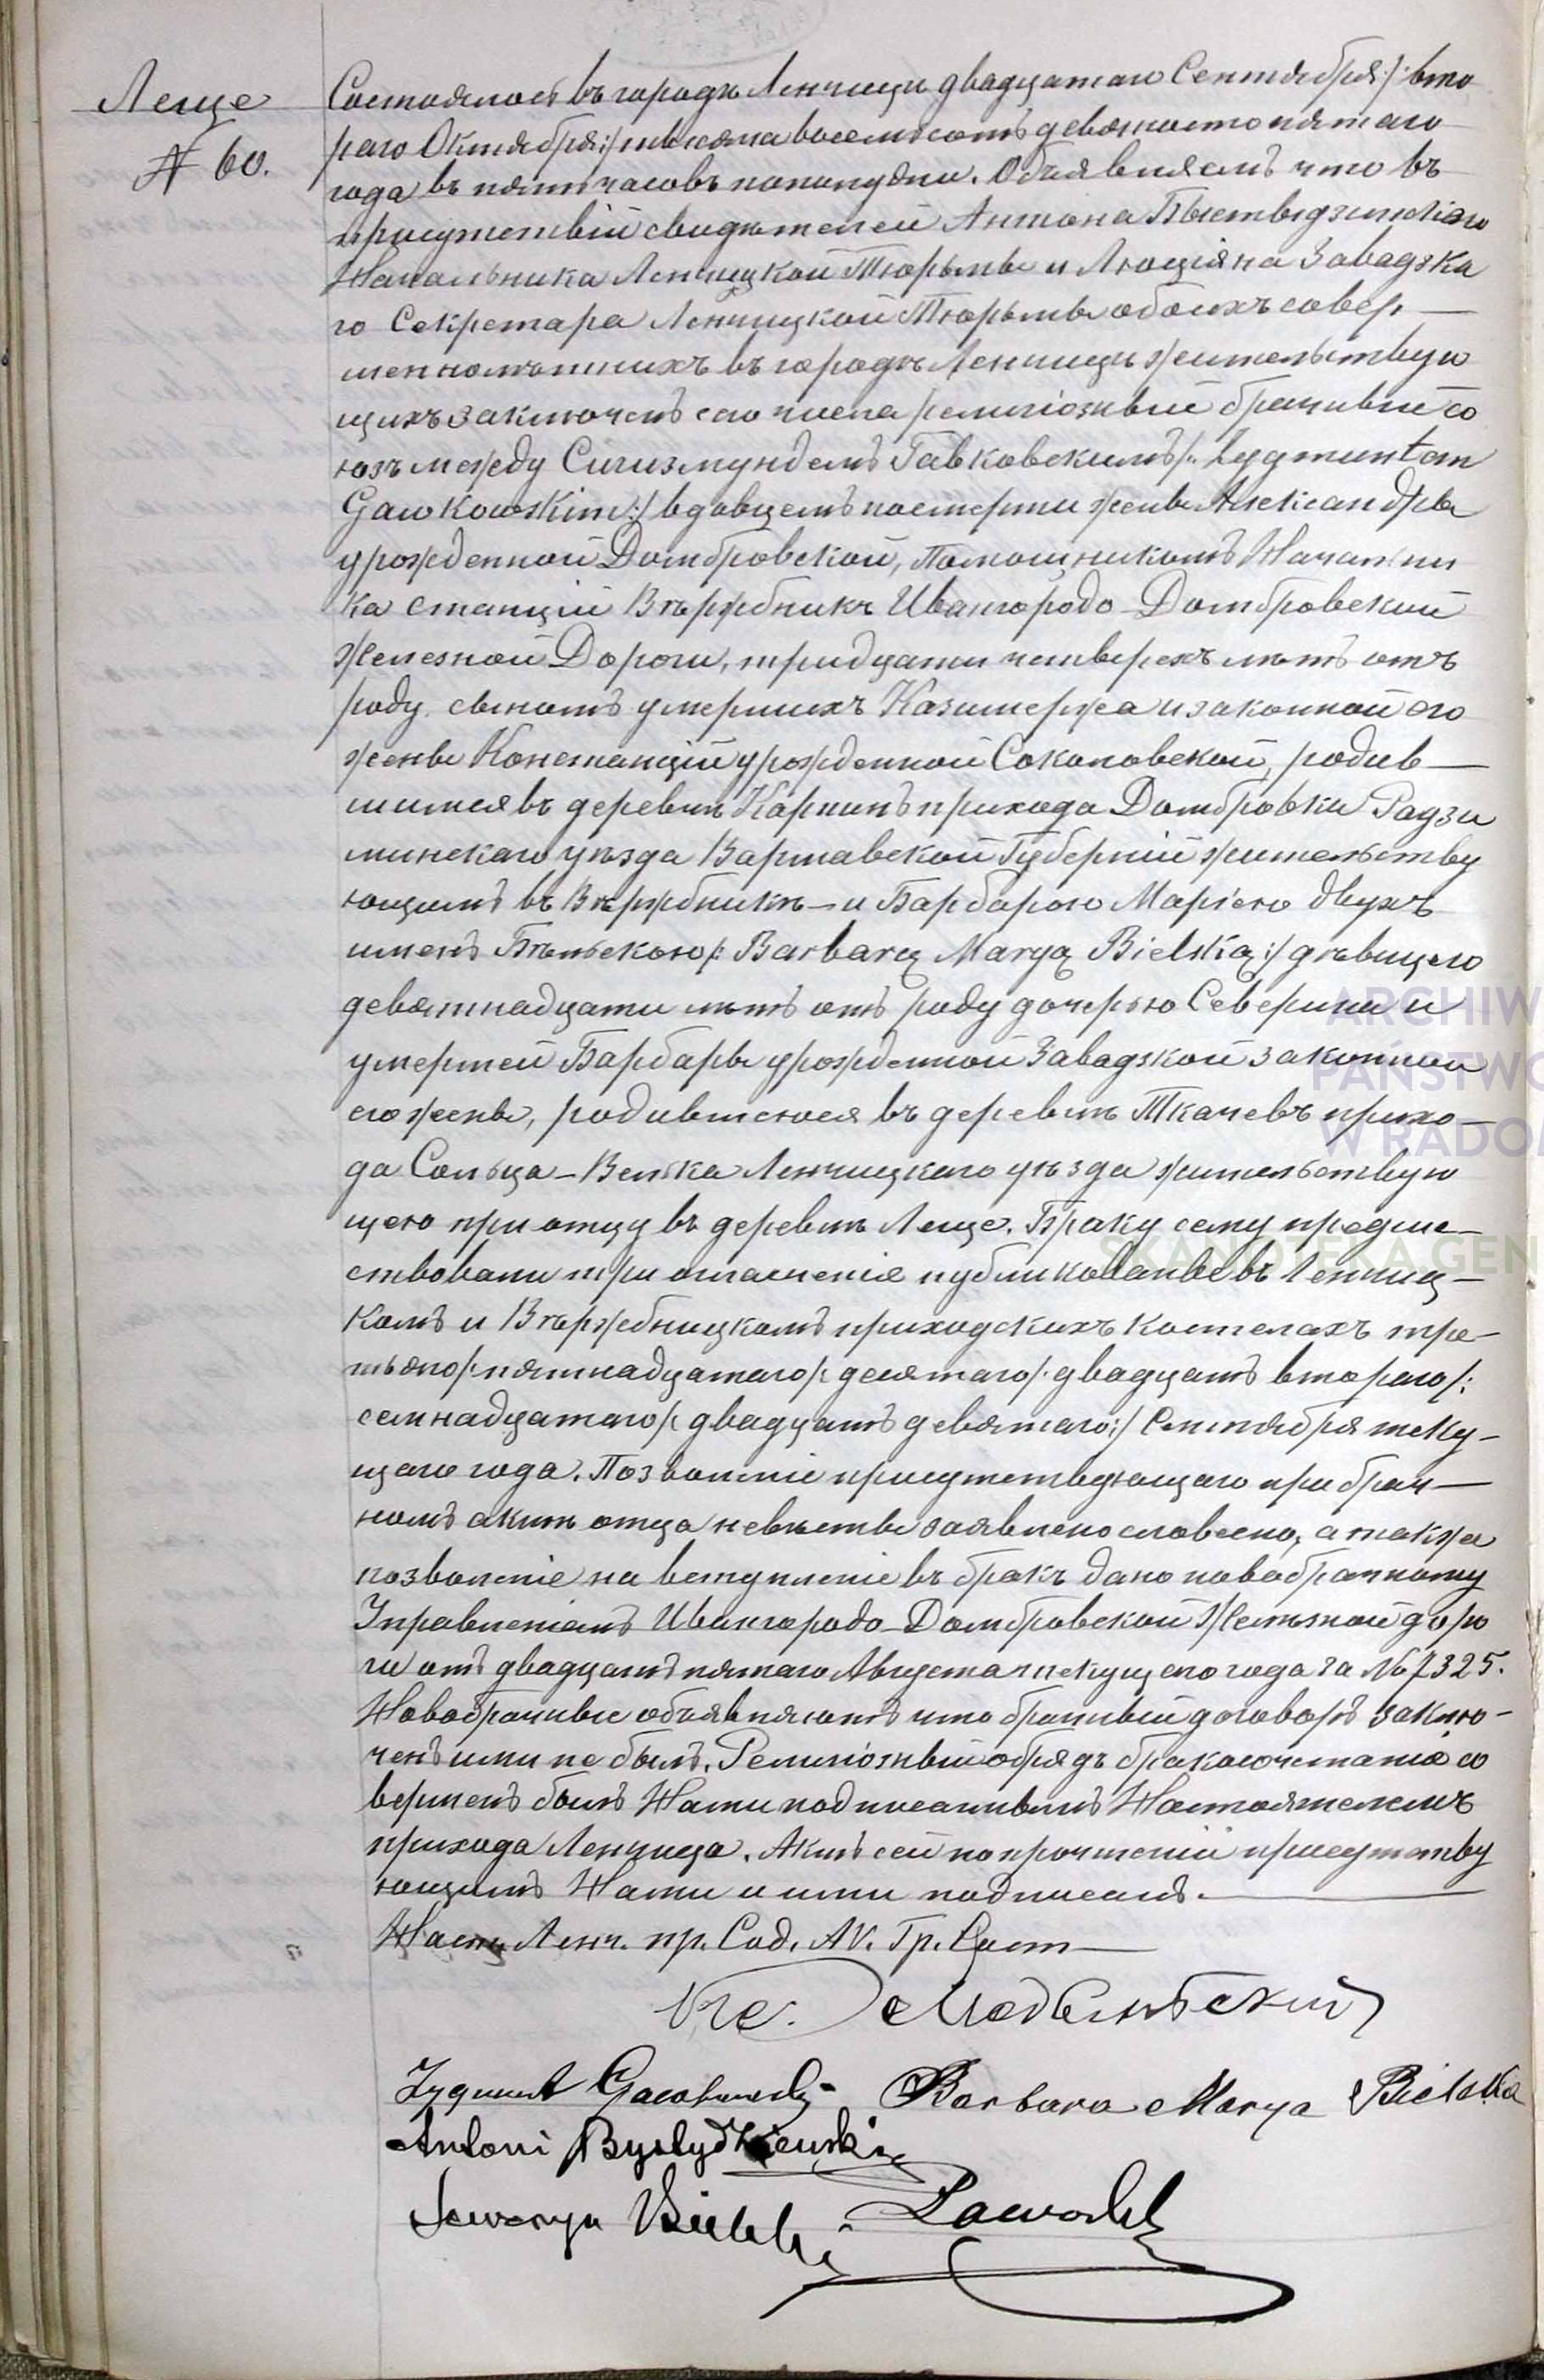 Леще
№ 60.
Состоялось въ городѣ Ленчицѣ двадцатаго Сентября /: вто
раго Октября :/ тысяча восемьсотъ девяносто пятаго
года въ пять часовъ пополудни. Объявляемъ что въ
присутствіи свидѣтелей Антона
Начальника Ленчицкой Тюрьмы и Люціяна Завадзка
го Секретара Ленчицкой Тюрьмы обоихъ совер-
шеннолѣтнихъ въ городѣ Ленчицѣ жительствую
щихъ заключенъ сего числа религіозный брачный со
юзъ между Сигизмундемъ Гавковскимъ /: Zygmuntem
Gawkowskim :/ вдовцемъ посмерти жены Александры
урожденной Домбровской, Помощникомъ Начальни
ка станціи Вѣржбникъ Ивангородо-Домбровский
Железной Дороги, тридцати четверехъ лѣтъ отъ
роду, сыномъ умершихъ Казимержа и законной его
жены Констанціи урожденной Соколовской, родив-
шимся въ деревнѣ Карпинъ прихода Домбровки Радзи
минскаго уѣзда Варшавской Губерніи жительству
ющимъ въ Вѣржбникѣ - и Барбарою Маріею двухъ
именъ Бѣльскою /: Barbarą Maryą Bielską :/ дѣвицею
девятнадцати лѣтъ отъ роду дочерью Северина и
умершей Барбары урожденной Завадзкой законной
его жены, родившеюся въ деревнѣ Ткачевъ прихо-
да Сольца-Велька Ленчицкаго уѣзда жительствую
щею при отцу въ деревнѣ Леще. Браку сему предше-
ствовали три оглашенія публикованые въ Ленчиц-
комъ и Вѣржбницкомъ приходскихъ костелахъ тре-
тьяго /: пятнадцатаго /: десятаго /: двадцать втораго /:
семнадцатаго /: двадцать девятаго :/ Сентября теку-
щаго года. Позволеніе присутствующаго при брач-
номъ актѣ отца невѣсты заявлено словесно, а также
позволеніе на вступленіе въ бракъ дано новобрачному
Управленіемъ Ивангородо-Домбровской Желѣзной доро
ги отъ двадцать пятаго Августа текущего года за № 7325.
Новобрачные объявляютъ что брачный договоръ заклю-
ченъ ими не былъ. Религіозный обрядъ бракосочетанія со
вершенъ былъ Нами подписавшимъ Настоятелемъ
прихода Ленчица. Актъ сей по прочтеніи присутству
ющимъ Нами и ими подписанъ.
Наст. Ленч. пр. Сод. Ак. Гр. Сост
Кс.
Zygmunt Gawkowski Barbara Marya Bielska
Antoni
Seweryn Bielski Zawadzki
ARCHIWUM
PAŃSTWOWE
W RADOMIU
SKANOTEKA.GEN